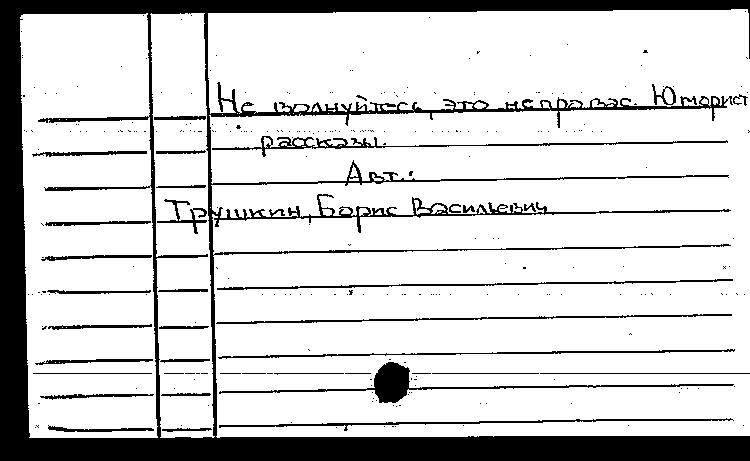 Не волнуйтесь, это неправда. Юморист
рассказы.
Авт.:
Трушкин, Борис Васильевич